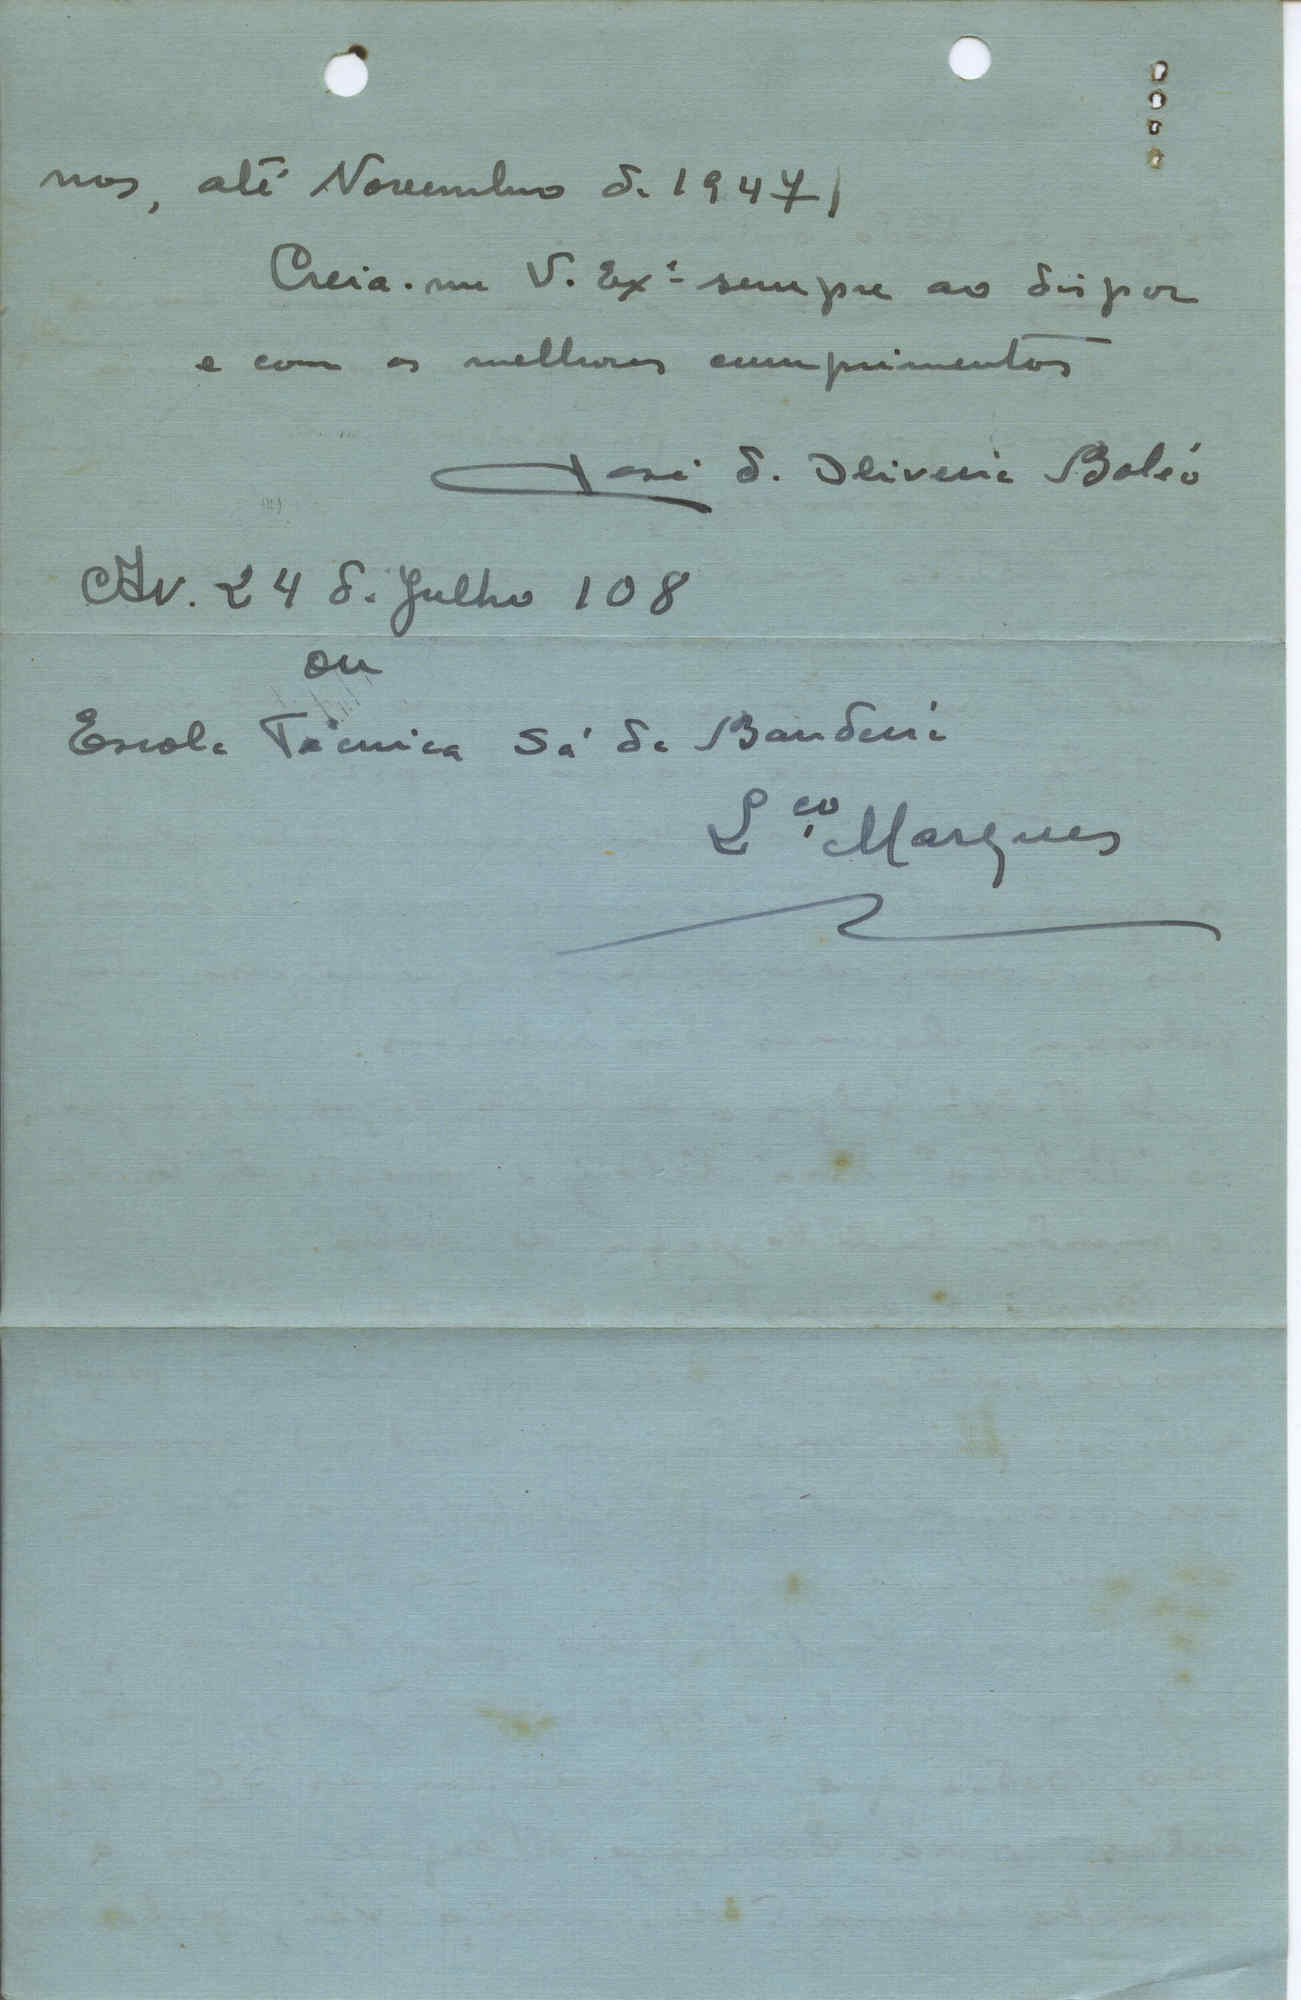 nos, até Novembro de 1947/
Creia-me V. Exª sempre ao dispor
e com os melhores cumprimentos
José de Oliveira Boléo
Av. 24 de Julho 108
ou
Escola Técnica Sá da Bandeira
L.ço Marques